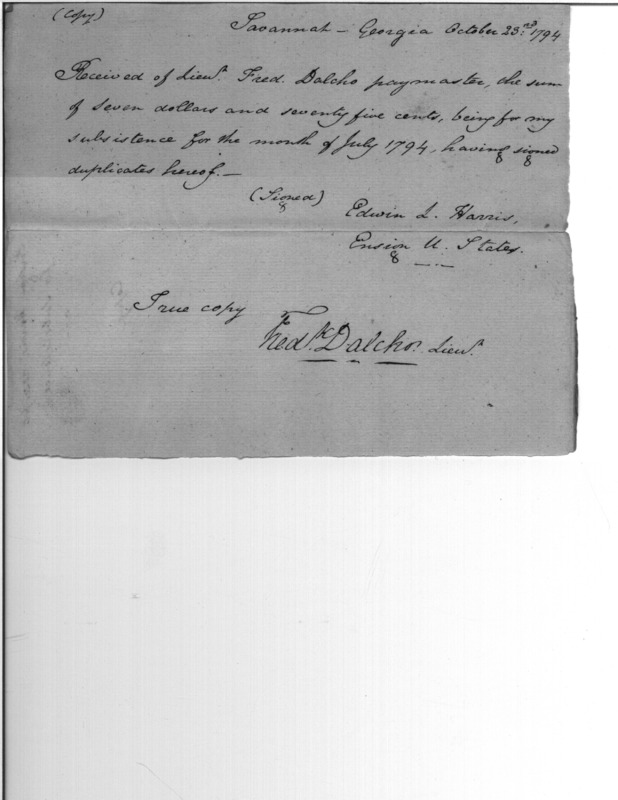 (Copy)
Savannah – Georgia October 23.rd 1794
Received of Lieut. Fred. Dalcho paymaster, the sum
of seven dollars and seventy five cents, being for my
subsistence for the month of July 1794, having signed
duplicates hereof. –
(Signed)
Edwin L. Harris,
Ensign U. States.
True copy
Fredk. Dalcho. Lieut.